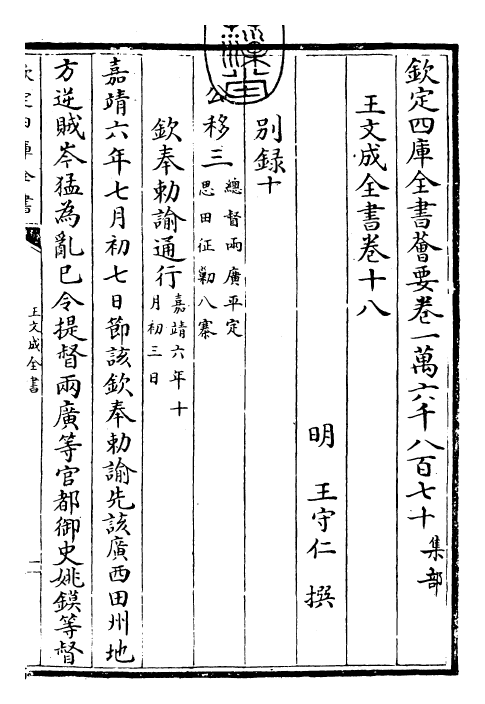 欽定四庫全書薈要卷一萬六千八百七十 集部
王文成全書卷十八
明 王守仁 撰
別錄十
公移三 總督兩廣平定
思田征勦八寨
欽奉勅諭通行 嘉靖六年十
月初三日
嘉靖六年七月初七日節該欽奉勅諭先該廣西田州地
方逆賊岑猛為亂已令提督兩廣等官都御史姚鏌等督
欽定四庫全書
王文成全書